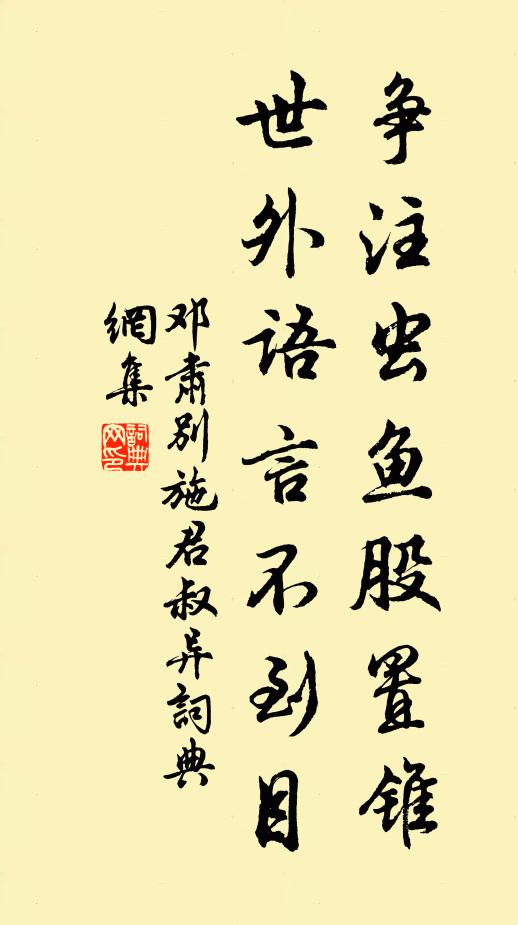 争注虫鱼股置锥
世外語言不到目
邓肃别施君叔异詞典
網集
詞典網印